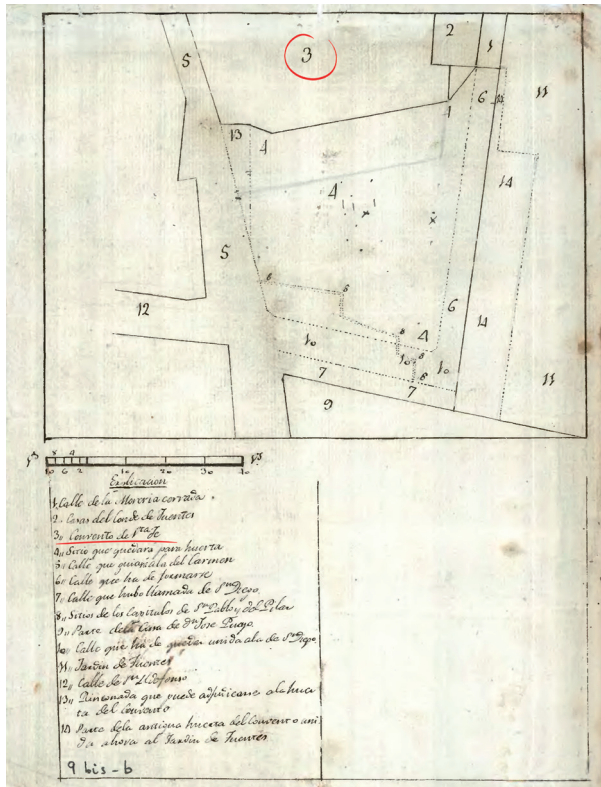 2 1
5 3
6 11 11
13 1
4
4 14
5
6
8 8
12
4 14
10 8
10 8 10
7 8
7 11
9
Vs 8 4 Vs
10 6 2 10 20 30 40
Explicacion
1,, Calle de la Moreria cerrada
2,, Casas del Conde de Fuentes
3,, Convento de Sta Fe
4,, Sitio que quedará para huerta
5,, Calle que guia ala del Carmen
6,, Calle que ha de formarse
7,, Calle que hubo llamada de Sn Diego
8,, Sitios de los Capitulos de Sn Pablo, y del Pilar
9,, Parte dela Casa de dn Jose Puejo
10,, Calle que ha de quedar unida ala de Sn Diego
11,, Jardin de Fuentes
12,, Calle de Sn Ildefonso
13,, Rinconada que puede adjudicarse ala huer
ta del convento
14 Parte dela antigua huerta del Convento uni
da ahora al Jardin de Fuentes
9 bis - b